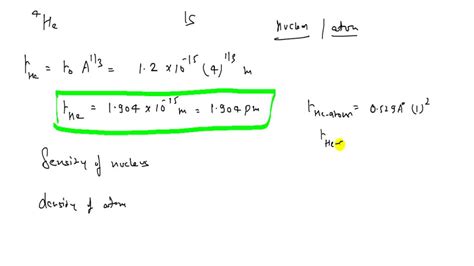 ⁴He 1s nucleus / atom
r_He = r₀ A^1/3 = 1.2 × 10⁻¹⁵ (4)^1/3 m
r_He = 1.904 × 10⁻¹⁵ m = 1.904 pm
r_He-atom = 0.529 A° (1)²
r_He-
density of nucleus
density of atom